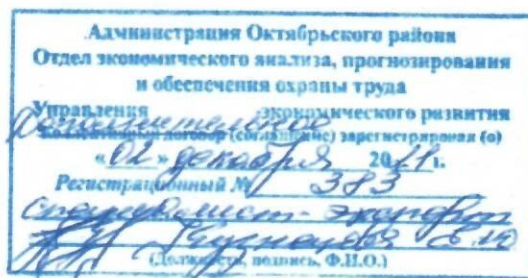 Администрация Октябрьского района
Отдел экономического анализа, прогнозирования
и обеспечения охраны труда
Управления экономического развития
Дополнительное
Коллективный договор (соглашение) зарегистрирован (о)
«02» декабря 20 г.
Регистрационный № 383
специалист-эксперт
Кузнецова
(Должность, подпись, Ф.И.О.)